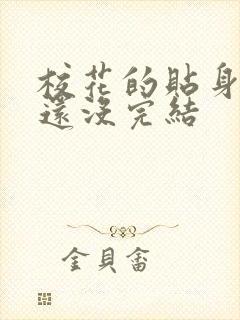 校花的貼身
還沒完結
金貝畬